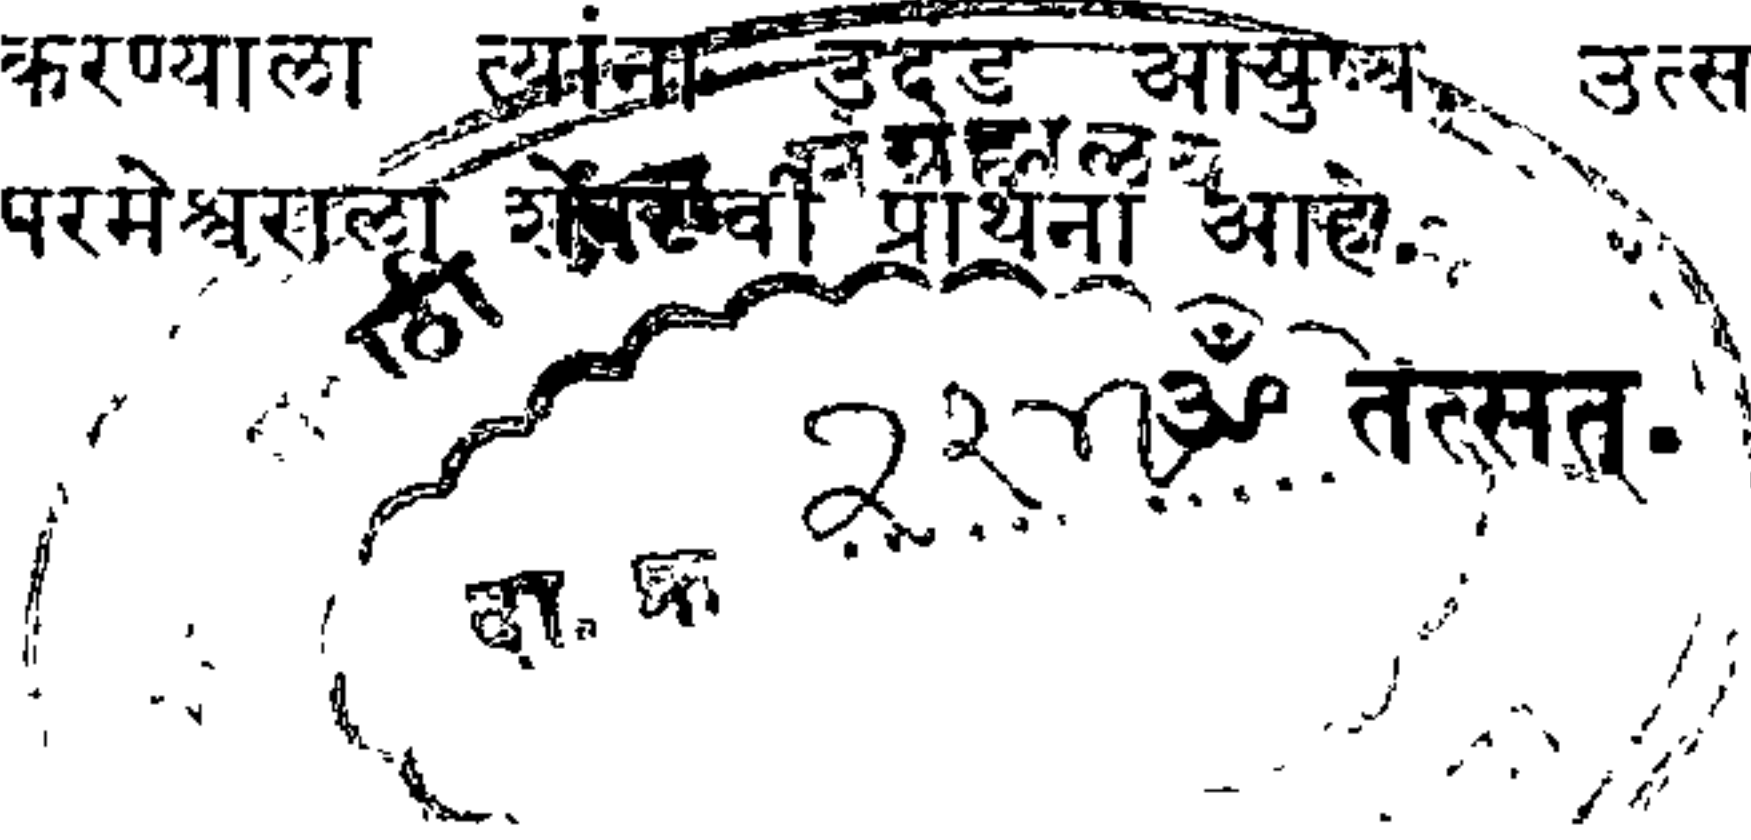 करण्याला त्यांना उदंड आयुष्य उत्स
परमेश्वराला शेवटची प्रार्थना आहे.
ॐ तत्सत्.
दा. क्र